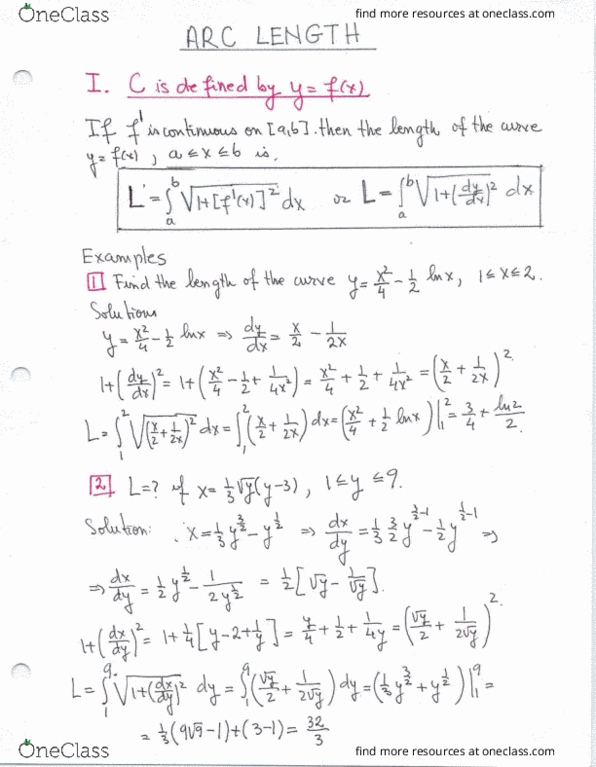 OneClass
find more resources at oneclass.com
ARC LENGTH
I. C is defined by y = f(x)
If f' is continuous on [a,b]. then the length of the curve
y = f(x), a ≤ x ≤ b is,
L = ∫_a^b √(1+[f'(x)]²) dx or L = ∫_a^b √(1+(dy/dx)²) dx
Examples
1 Find the length of the curve y = x²/4 - 1/2 lnx, 1 ≤ x ≤ 2.
Solution
y = x²/4 - 1/2 lnx ⇒ dy/dx = x/2 - 1/2x
1+(dy/dx)² = 1+(x²/4 - 1/2 + 1/4x²) = x²/4 + 1/2 + 1/4x² = (x/2 + 1/2x)²
L = ∫_1^2 √((x/2 + 1/2x)²) dx = ∫_1^2 (x/2 + 1/2x) dx = (x²/4 + 1/2 lnx)|_1^2 = 3/4 + ln2/2.
2 L=? if x = 1/3 √y(y-3), 1 ≤ y ≤ 9.
Solution: x = 1/3 y^(3/2) - y^(1/2) ⇒ dx/dy = 1/3 3/2 y^(3/2-1) - 1/2 y^(1/2-1) ⇒
⇒ dx/dy = 1/2 y^(1/2) - 1/(2y^(1/2)) = 1/2 [√y - 1/√y].
1+(dx/dy)² = 1+1/4 [y-2+1/y] = y/4 + 1/2 + 1/4y = (√y/2 + 1/2√y)².
L = ∫_1^9 √(1+(dx/dy)²) dy = ∫_1^9 (√y/2 + 1/2√y) dy = (1/3 y^(3/2) + y^(1/2))|_1^9 =
= 1/3 (9√9 - 1) + (3-1) = 32/3
OneClass
find more resources at oneclass.com